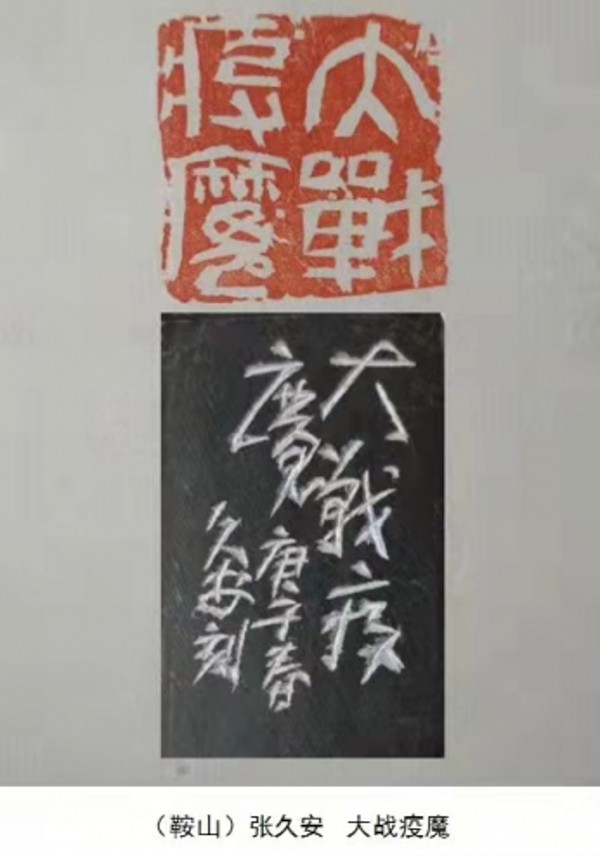 大戰
疫魔
大戰疫
魔庚子春
久安刻
（鞍山）张久安 大战疫魔